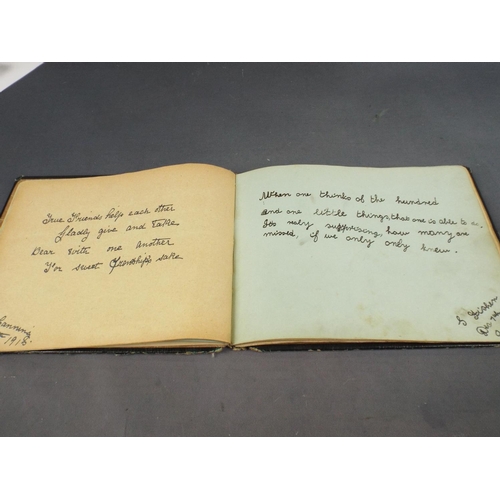 True Friends help each other
Gladly give and take
Bear with one another
For sweet Friendship's sake
Canning
1918.
When one thinks of the hundred
and one little things, that one is able to
Its realy suprising, how many are
missed, if we only only knew.